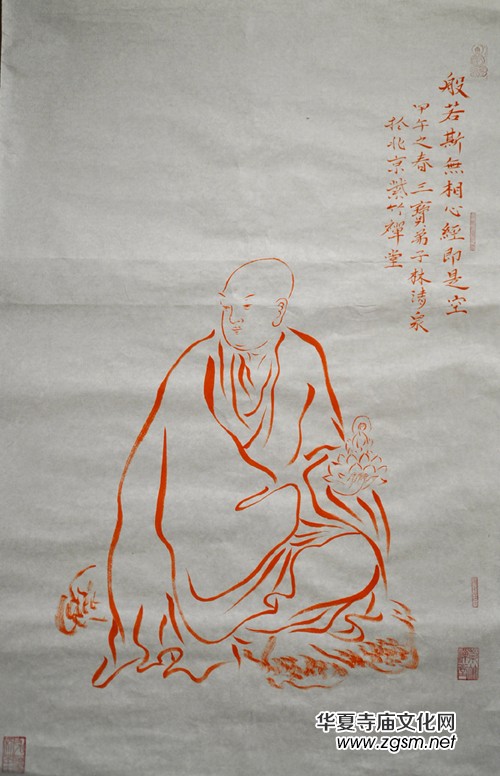 般若斯無相心經即是空
甲午之春三寶弟子林清泉
於北京紫竹禪堂
华夏寺庙文化网
www.zgsm.net